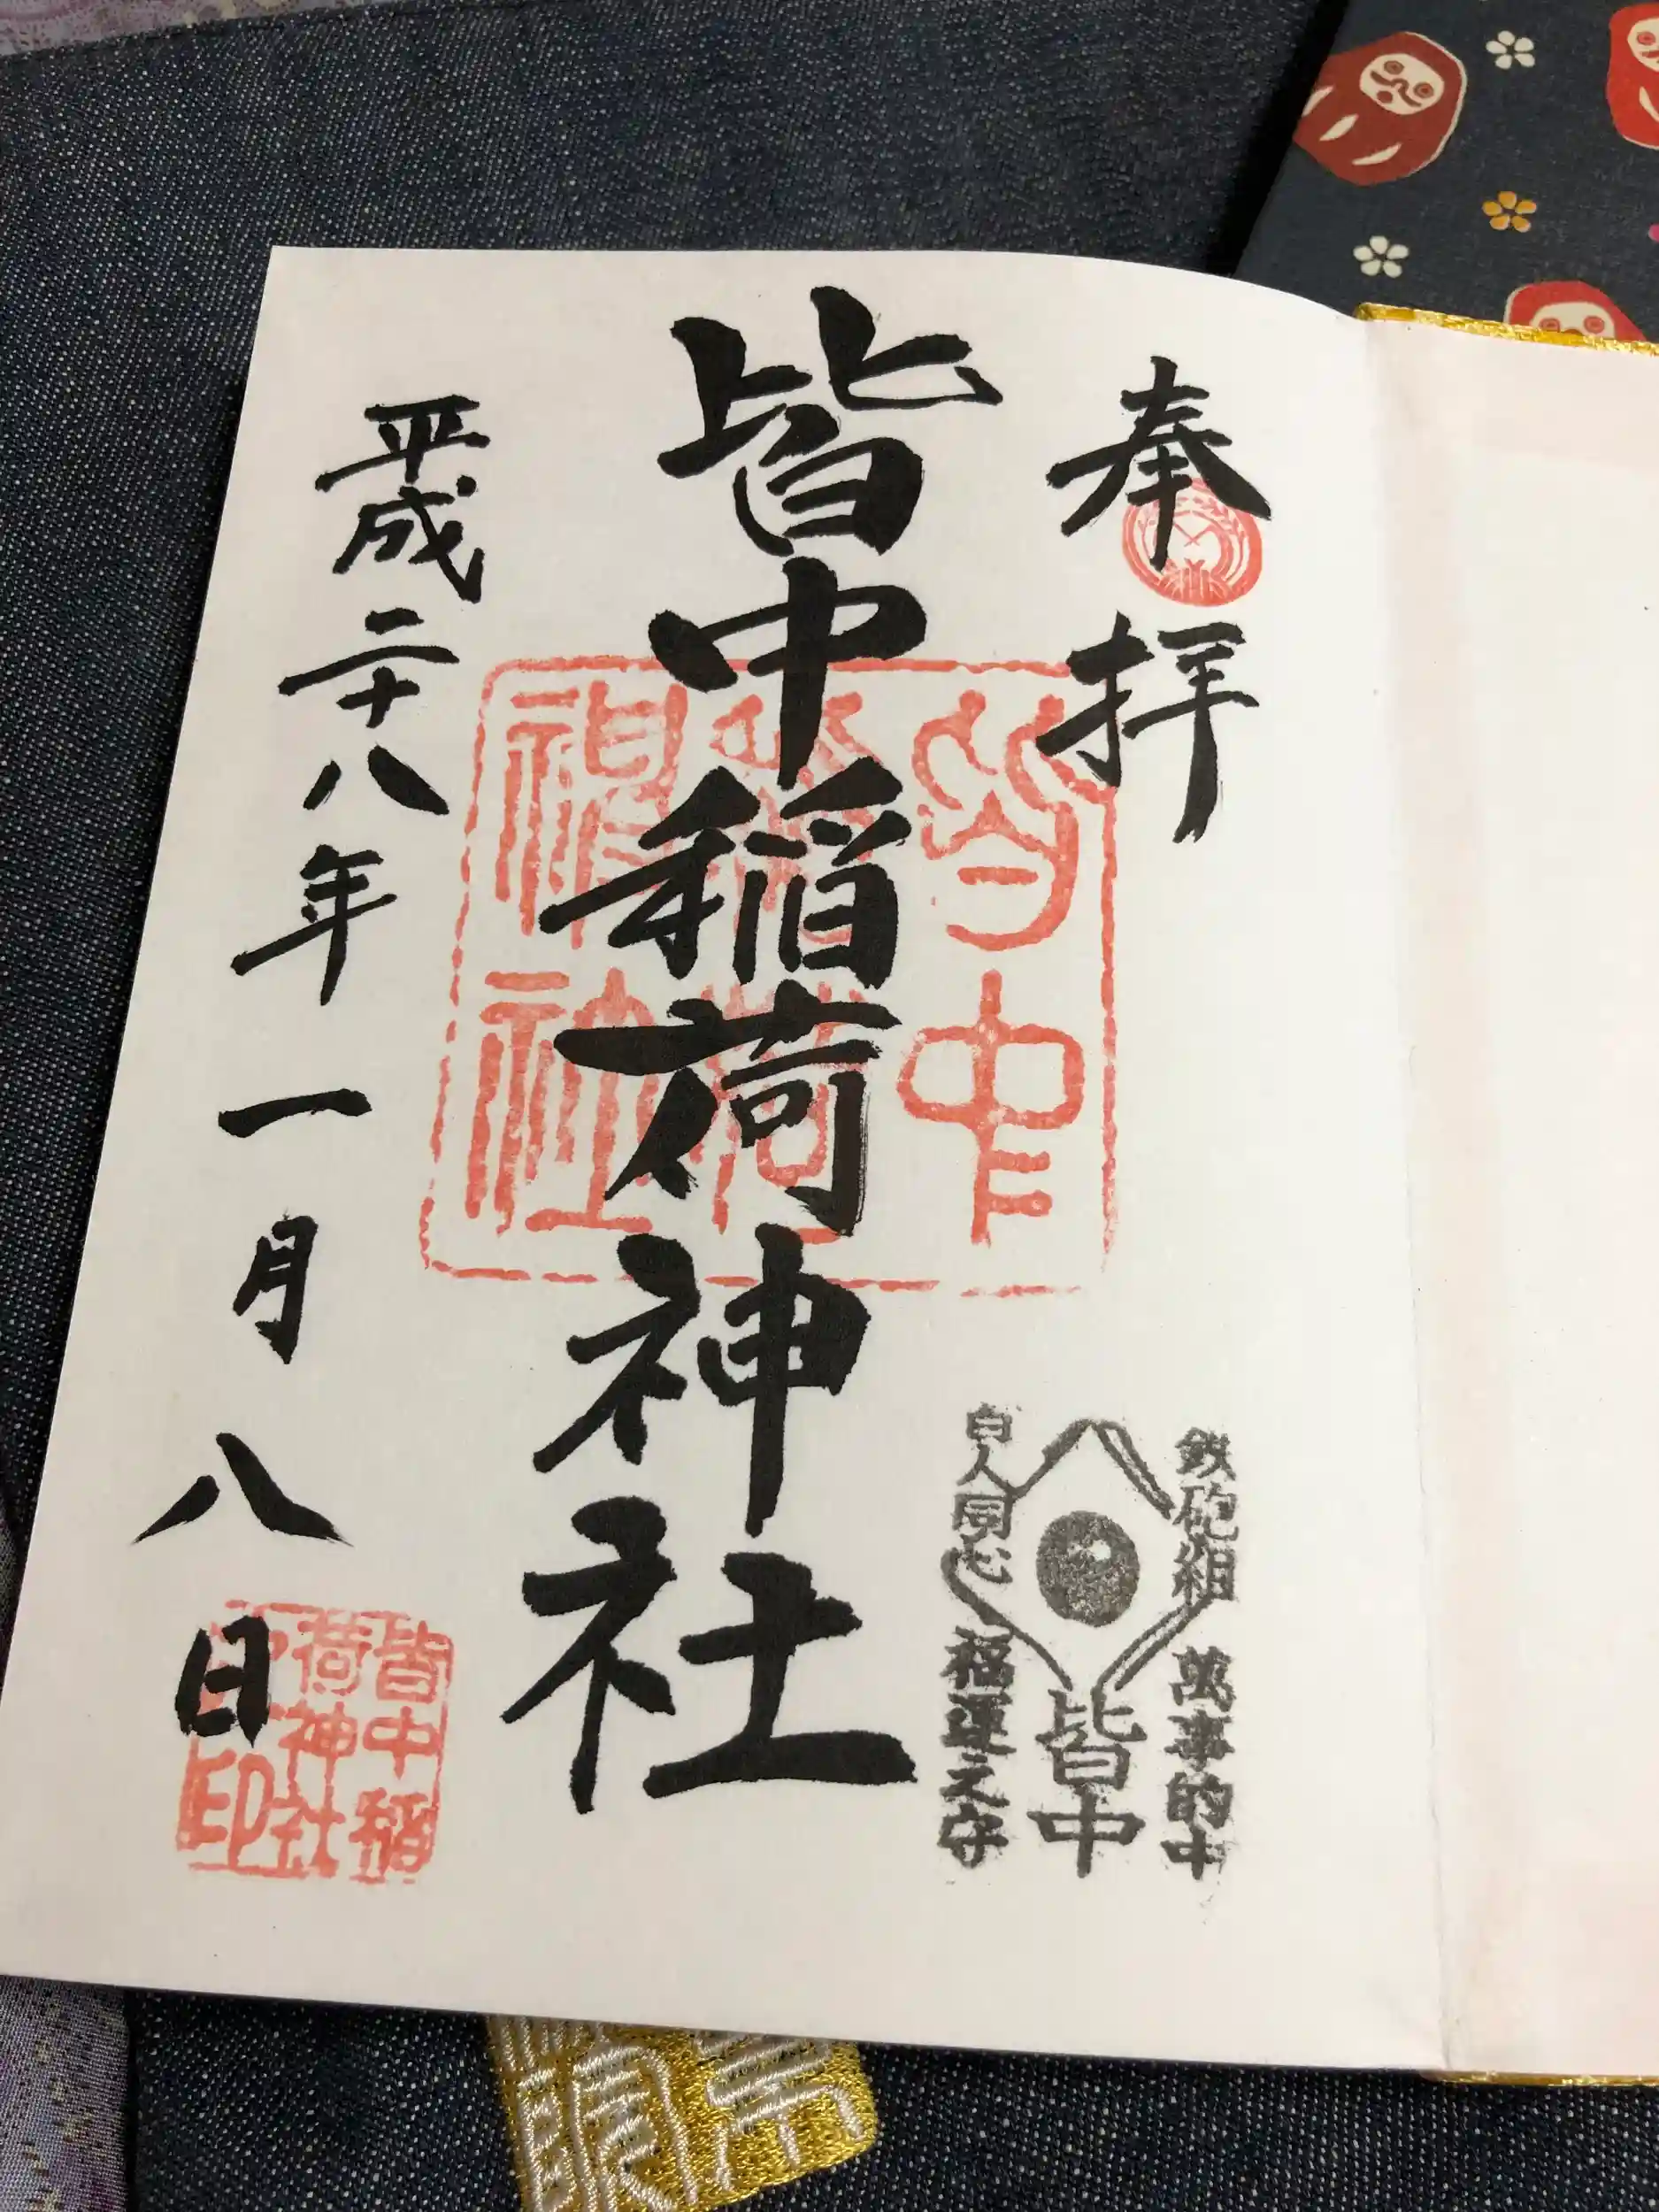 奉拝
皆中稲荷神社
平成二十八年一月八日
皆中
稲荷
神社
鉄砲組
萬事的中
皆中
百人同心
福運之守
皆中稲
荷神社
印